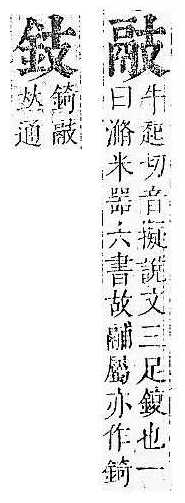 䰙
牛起切音擬說文三足鍑也一
曰滫米器六書故鬴屬亦作錡
鈘
錡䰙
𠀤通